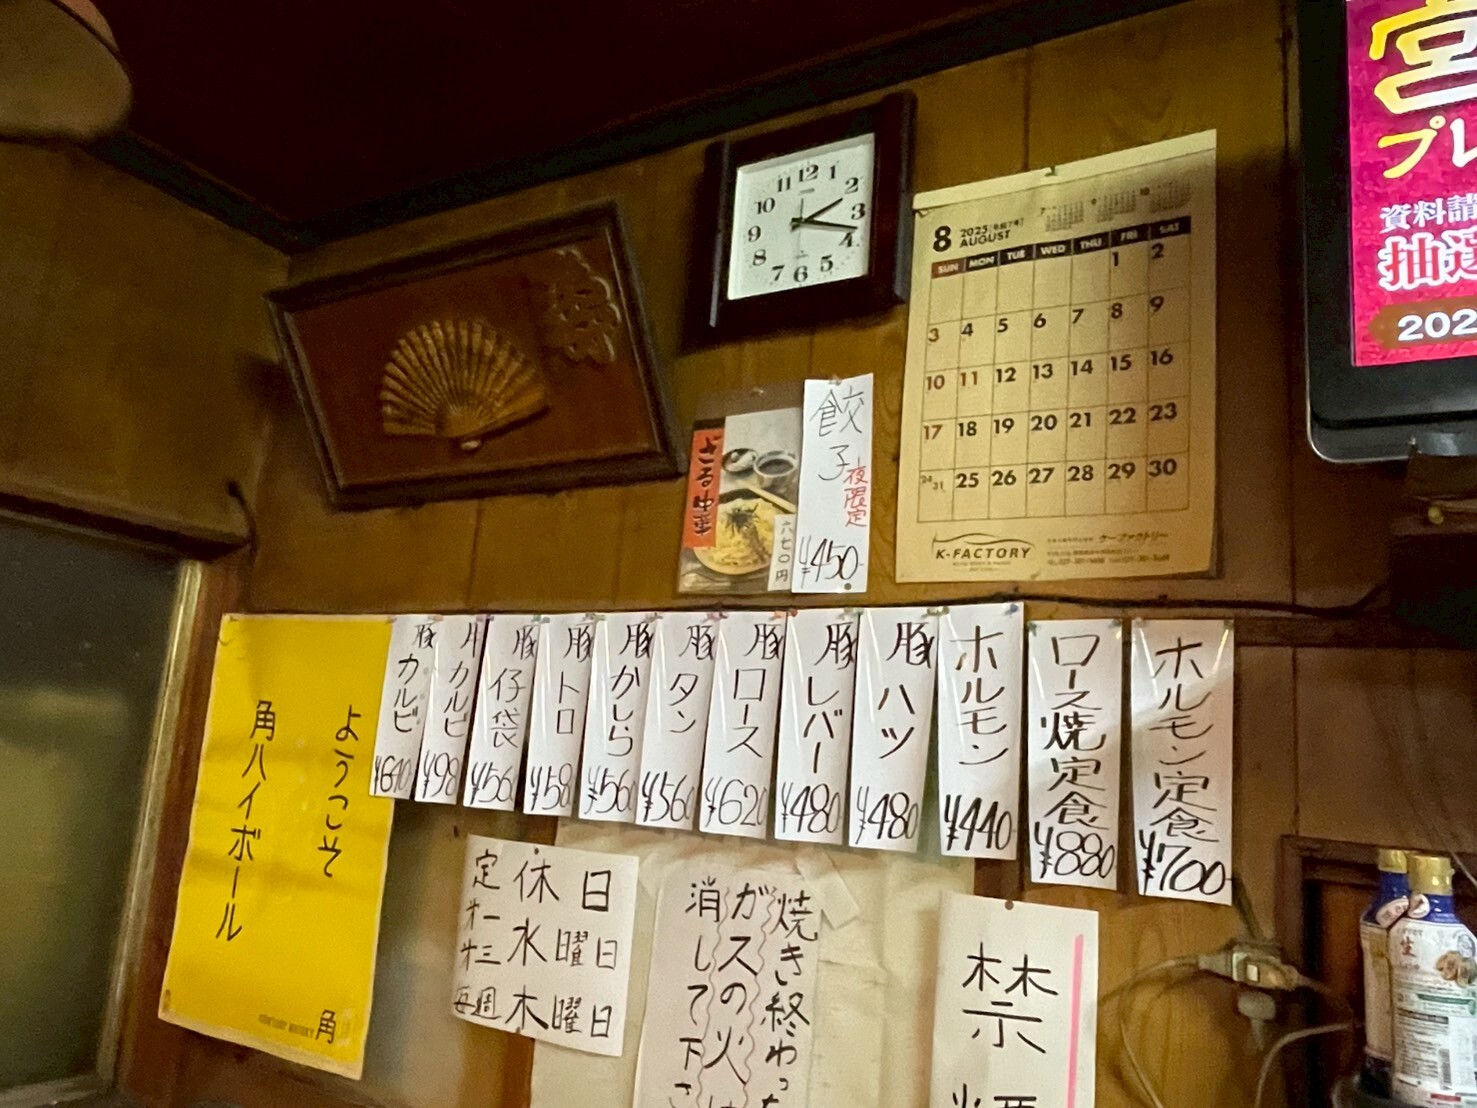 宮
プレ
資料請
抽選
202
12
1
2
3
4
5
6
7
8
9
10
11
8 2025 (令和7年)
AUGUST
7 9 10
SUN MON TUE WED THU FRI SAT
1 2
3 4 5 6 7 8 9
10 11 12 13 14 15 16
17 18 19 20 21 22 23
24/31 25 26 27 28 29 30
K-FACTORY
ケーファクトリー
ざる中華
六七〇円
餃子
夜限定
¥450-
ホルモン定食
¥700-
ロース焼定食
¥880
ホルモン
¥440-
豚ハツ
¥480
豚レバー
¥480
豚ロース
¥620
豚タン
¥560
豚かしら
¥560
豚トロ
¥58
豚仔袋
¥56
牛カルビ
¥98
豚カルビ
¥640
ようこそ
角ハイボール
SUNTORY WHISKY 角
定休日
オ一 水曜日
オ三
毎週 木曜日
焼き終わった
ガスの火は
消して下さ
禁煙
生